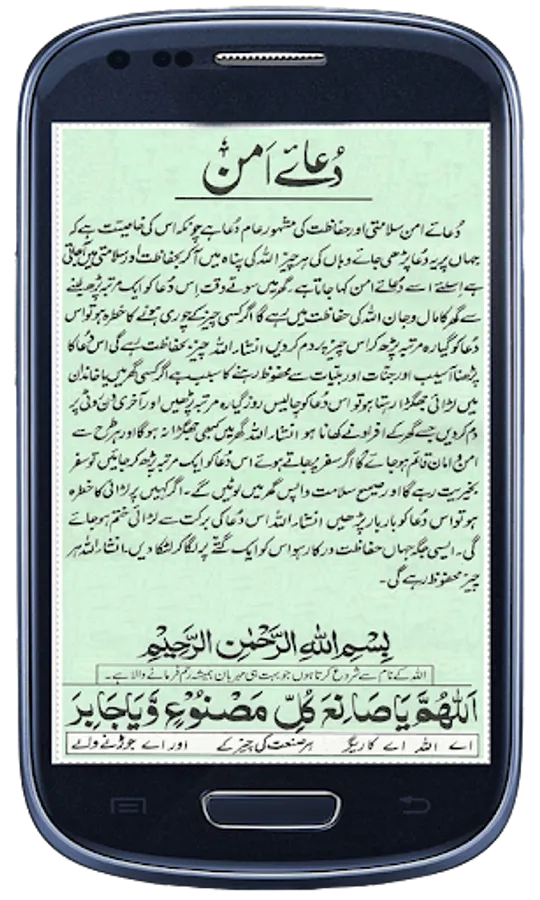 دُعائے اَمن
دُعائے امن سلامتی اور حفاظت کی مشہور عام دُعا ہے چونکہ اس کی خاصیت ہے کہ
جہاں پر یہ دُعا پڑھی جائے وہاں کی ہر چیز اللہ کی پناہ میں آ کر بحفاظت اور سلامتی میں آ جاتی
ہے اسلئے اسے دُعائے امن کہا جاتا ہے۔ گھر میں سوتے وقت اِس دُعا کو ایک مرتبہ پڑھ لینے
سے گھر کا مال و جان اللہ کی حفاظت میں رہے گا اگر کسی چیز کے چوری ہونے کا خطرہ ہو تو اس
دُعا کو گیارہ مرتبہ پڑھ کر اس چیز پر دم کر دیں انشاء اللہ چیز بحفاظت رہے گی اس دُعا کا
پڑھنا آسیب اور جنات اور بلیات سے محفوظ رہنے کا سبب ہے اگر کسی گھر میں یا خاندان
میں لڑائی جھگڑا رہتا ہو تو اس دُعا کو چالیس روز گیارہ مرتبہ پڑھیں اور آخری دن روٹی پر
دم کر دیں جسے گھر کے افراد نے کھانا ہو انشاء اللہ گھر میں کبھی جھگڑا نہ ہوگا اور ہر طرح سے
امن و امان قائم ہو جائے گا اگر سفر پر جاتے ہوئے اس دُعا کو ایک مرتبہ پڑھ کر جائیں تو سفر
بخیریت رہے گا اور صحیح سلامت واپس گھر میں لوٹیں گے۔ اگر کہیں پر لڑائی کا خطرہ
ہو تو اس دُعا کو بار بار پڑھیں انشاء اللہ اس دُعا کی برکت سے لڑائی ختم ہو جائے
گی۔ ایسی جگہ جہاں حفاظت درکار ہو اس کو ایک گتے پر لگا کر لٹکا دیں۔ انشاء اللہ ہر
چیز محفوظ رہے گی۔
بِسْمِ اللهِ الرَّحْمٰنِ الرَّحِيْمِ
اللہ کے نام سے شروع کرتا ہوں جو بہت ہی مہربان ہمیشہ رحم فرمانے والا ہے۔
اَللّٰهُمَّ يَا صَانِعَ كُلِّ مَصْنُوْعٍ وَّيَا جَابِرَ
اے اللہ اے کاریگر ہر صنعت کی چیز کے اور اے جوڑنے والے